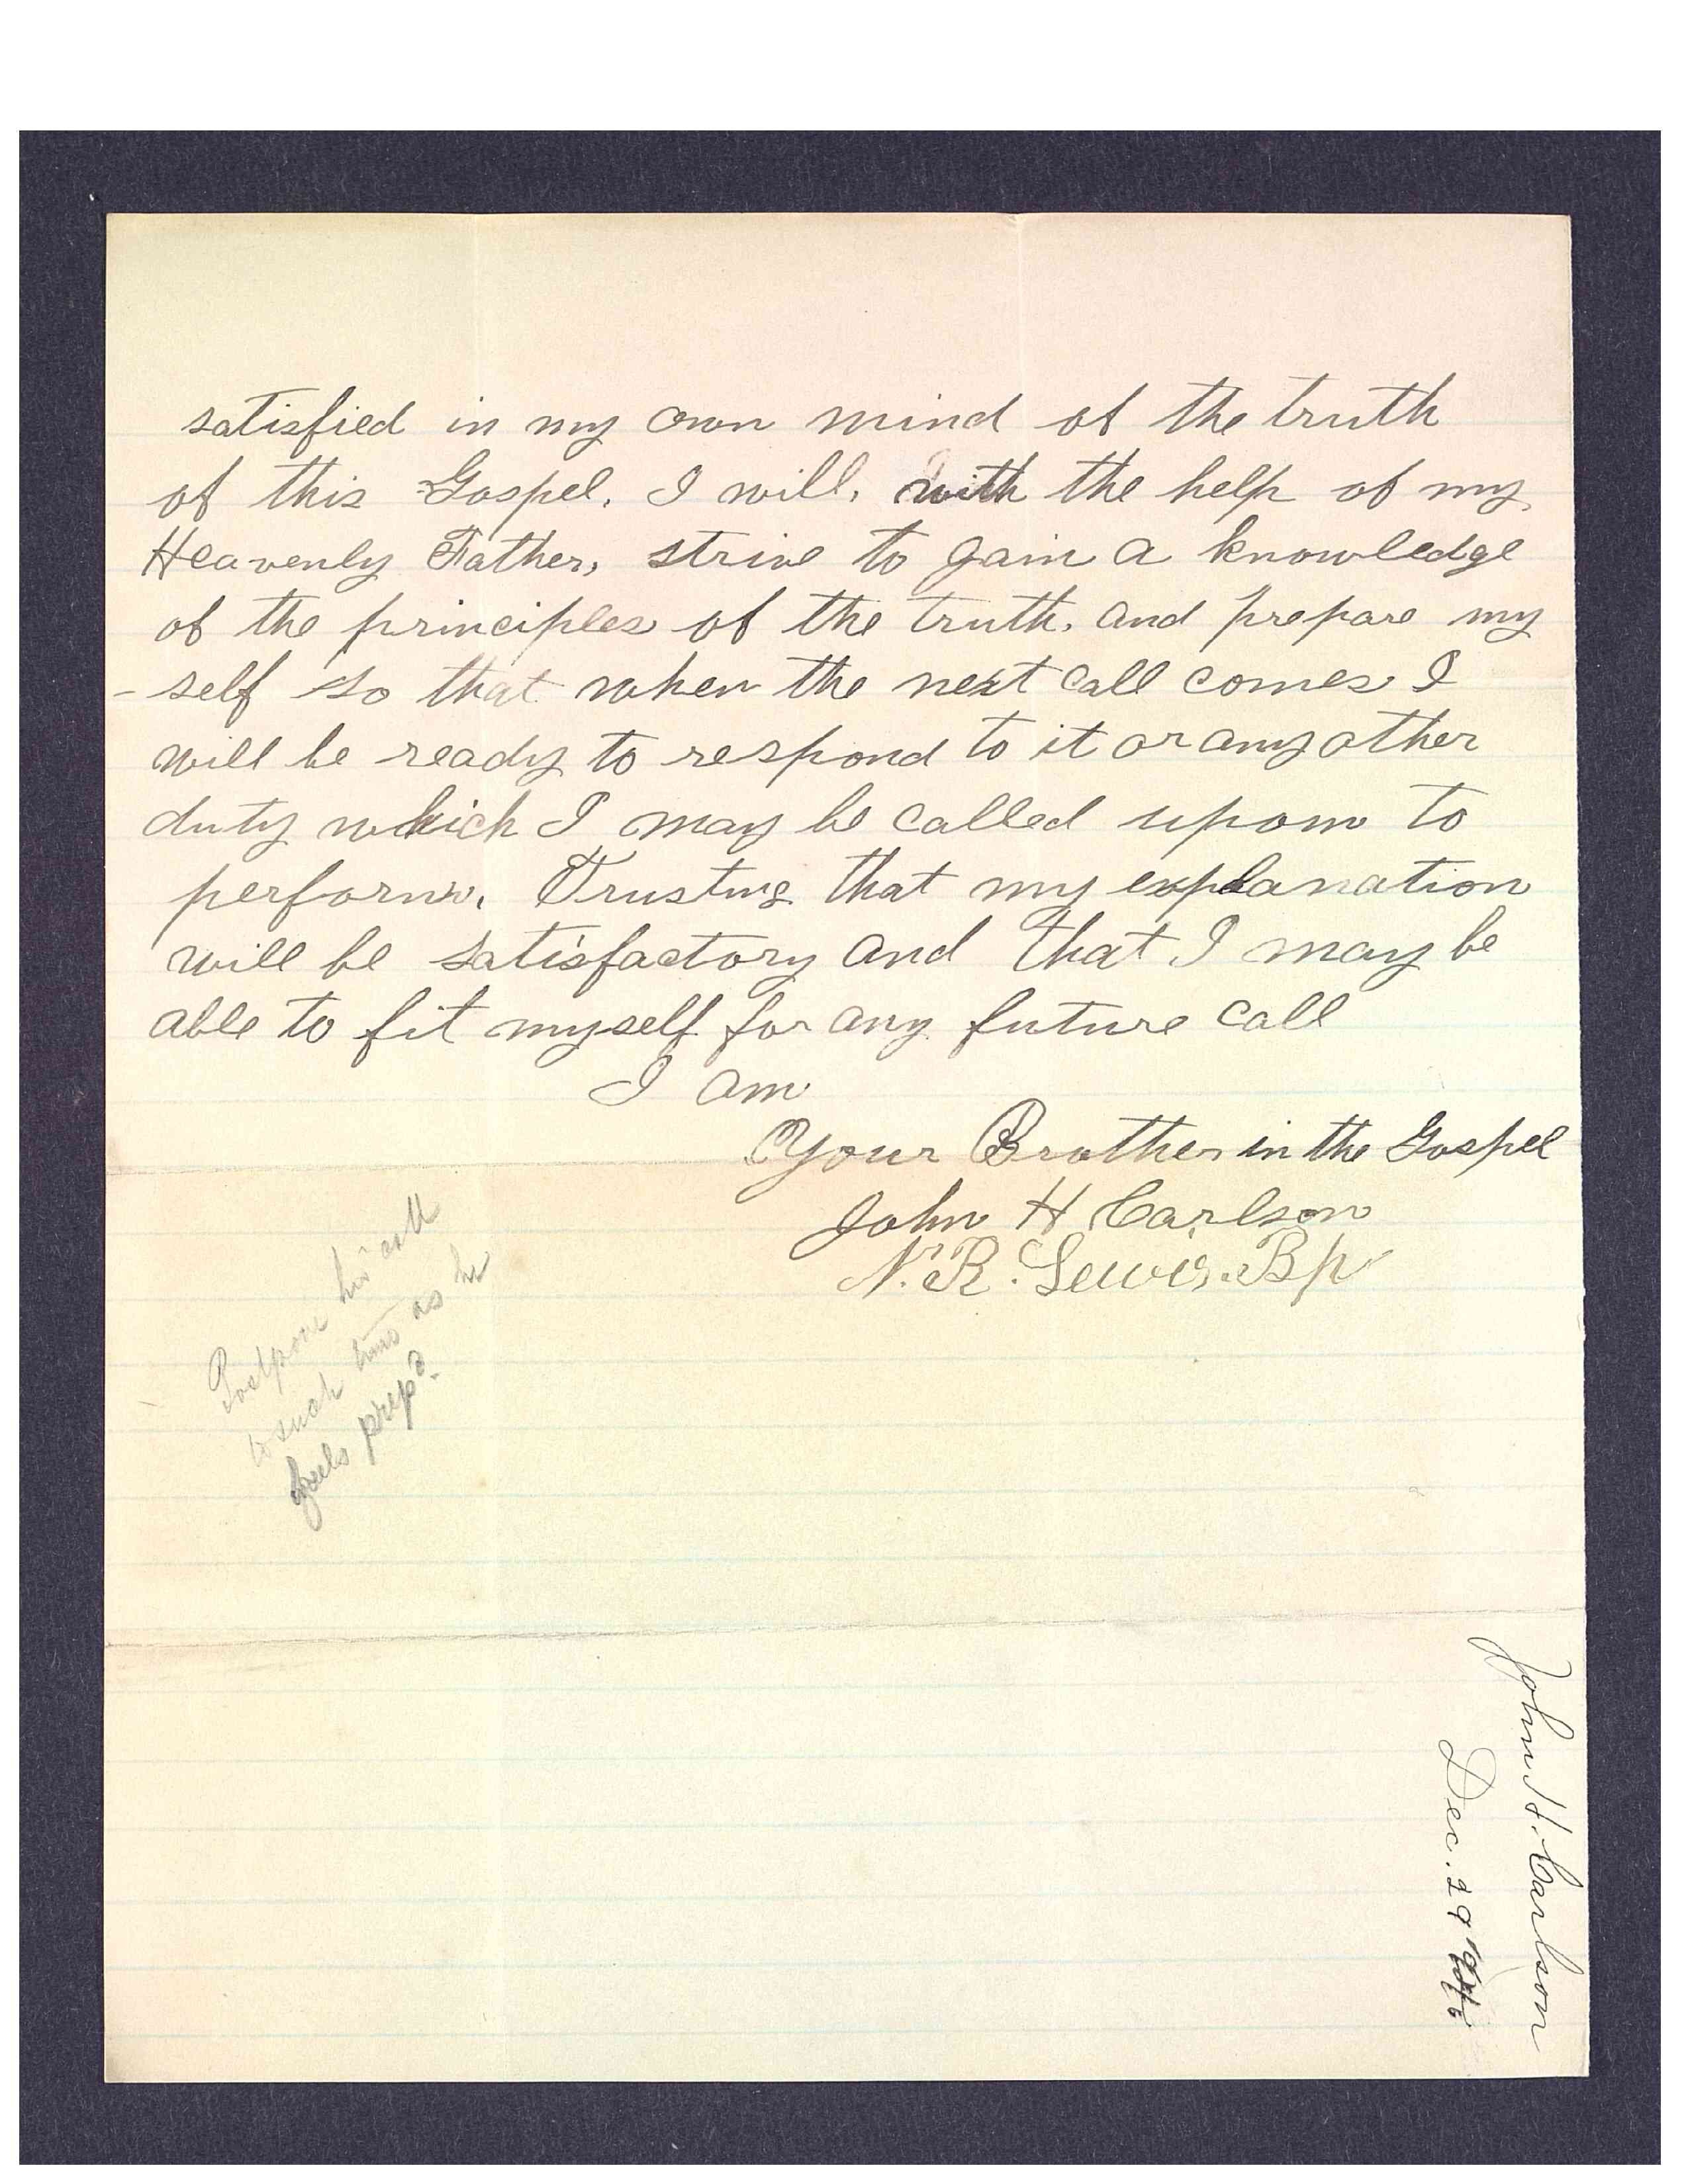 satisfied in my own mind of the truth
of this Gospel. I will, with the help of my
Heavenly Father, strive to gain a knowledge
of the principles of the truth, and prepare my
-self so that when the next call comes I
will be ready to respond to it or any other
duty which I may be called upom to
perform. Trusting that my explanation
will be satisfactory and that I may be
able to fit myself for any future call
I am
Your Brother in the Gospel
John H Carlson
N. R. Lewis. Bp
Postpone his call
to such time as he
feels prepd.
John H. Carlson
Dec. 29